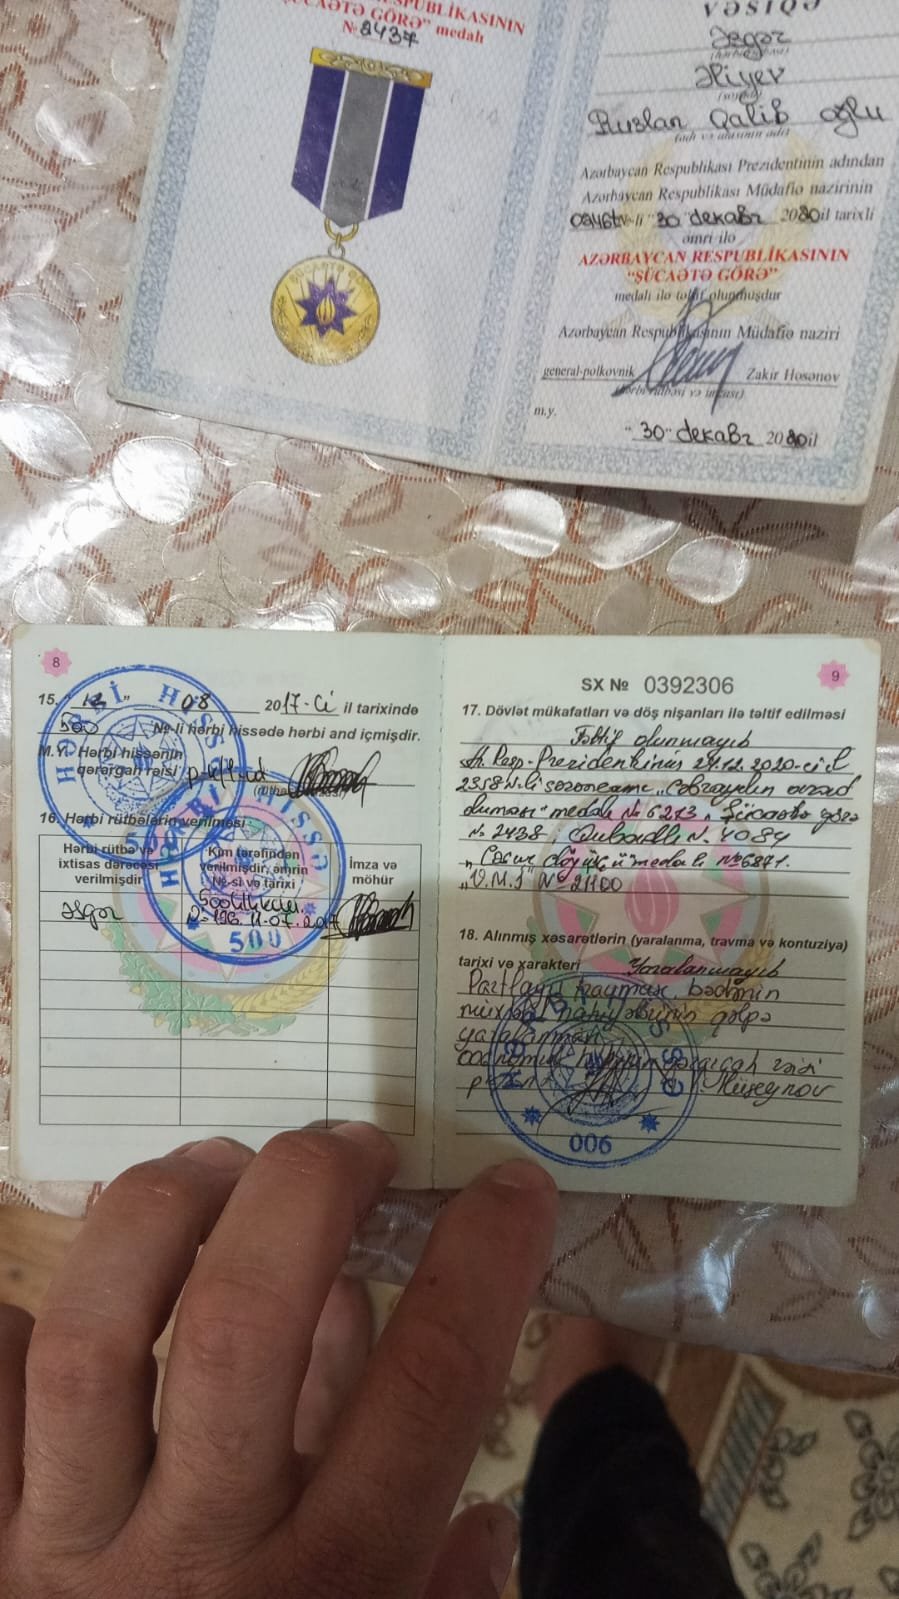 RESPUBLİKASININ
"ŞÜCAƏTƏ GÖRƏ" medalı
№ 2437
ŞÜCAƏTƏ
VƏSİQƏ
Əsgər
Əliyev
Ruslan Qalib oğlu
(adı və atasının adı)
Azərbaycan Respublikası Prezidentinin adından
Azərbaycan Respublikası Müdafiə nazirinin
"30" декабр 2020 il tarixli
əmri ilə
AZƏRBAYCAN RESPUBLİKASININ
"ŞÜCAƏTƏ GÖRƏ"
medalı ilə təltif olunmuşdur
Azərbaycan Respublikasının Müdafiə naziri
general-polkovnik Zakir Həsənov
(hərbi rütbəsi və imzası)
m.y.
"30" декабр 2020 il
8
15. "13" 08 2017-ci il tarixində
500 №-li hərbi hissədə hərbi and içmişdir.
M.Y. Hərbi hissənin
qərargah rəisi
HƏRBİ HİSSƏ
500
16. Hərbi rütbələrin verilməsi
Hərbi rütbə və
ixtisas dərəcəsi
verilmişdir
Kim tərəfindən
verilmişdir, əmrin
№-si və tarixi
İmza və
möhür
Əsgər
11.07.2017
HƏRBİ HİSSƏ
500
9
SX № 0392306
17. Dövlət mükafatları və döş nişanları ilə təltif edilməsi
Təltif olunmayıb
Az. Resp. Prezidentinin 24.12.2020-ci il
2358 №-li sərəncamı "Cəbrayılın azad
olunması" medalı № 6273 "Şücaətə görə"
№ 2438, Qubadlı N. 4084
"Cəsur döyüşçü" medalı №6871.
"V.M.İ" № 21100
18. Alınmış xəsarətlərin (yaralanma, travma və kontuziya)
tarixi və xarakteri Yaralanmayıb
Partlayış bədənin
qəlpə
yaralanması
qərargah rəisi
Hüseynov
006